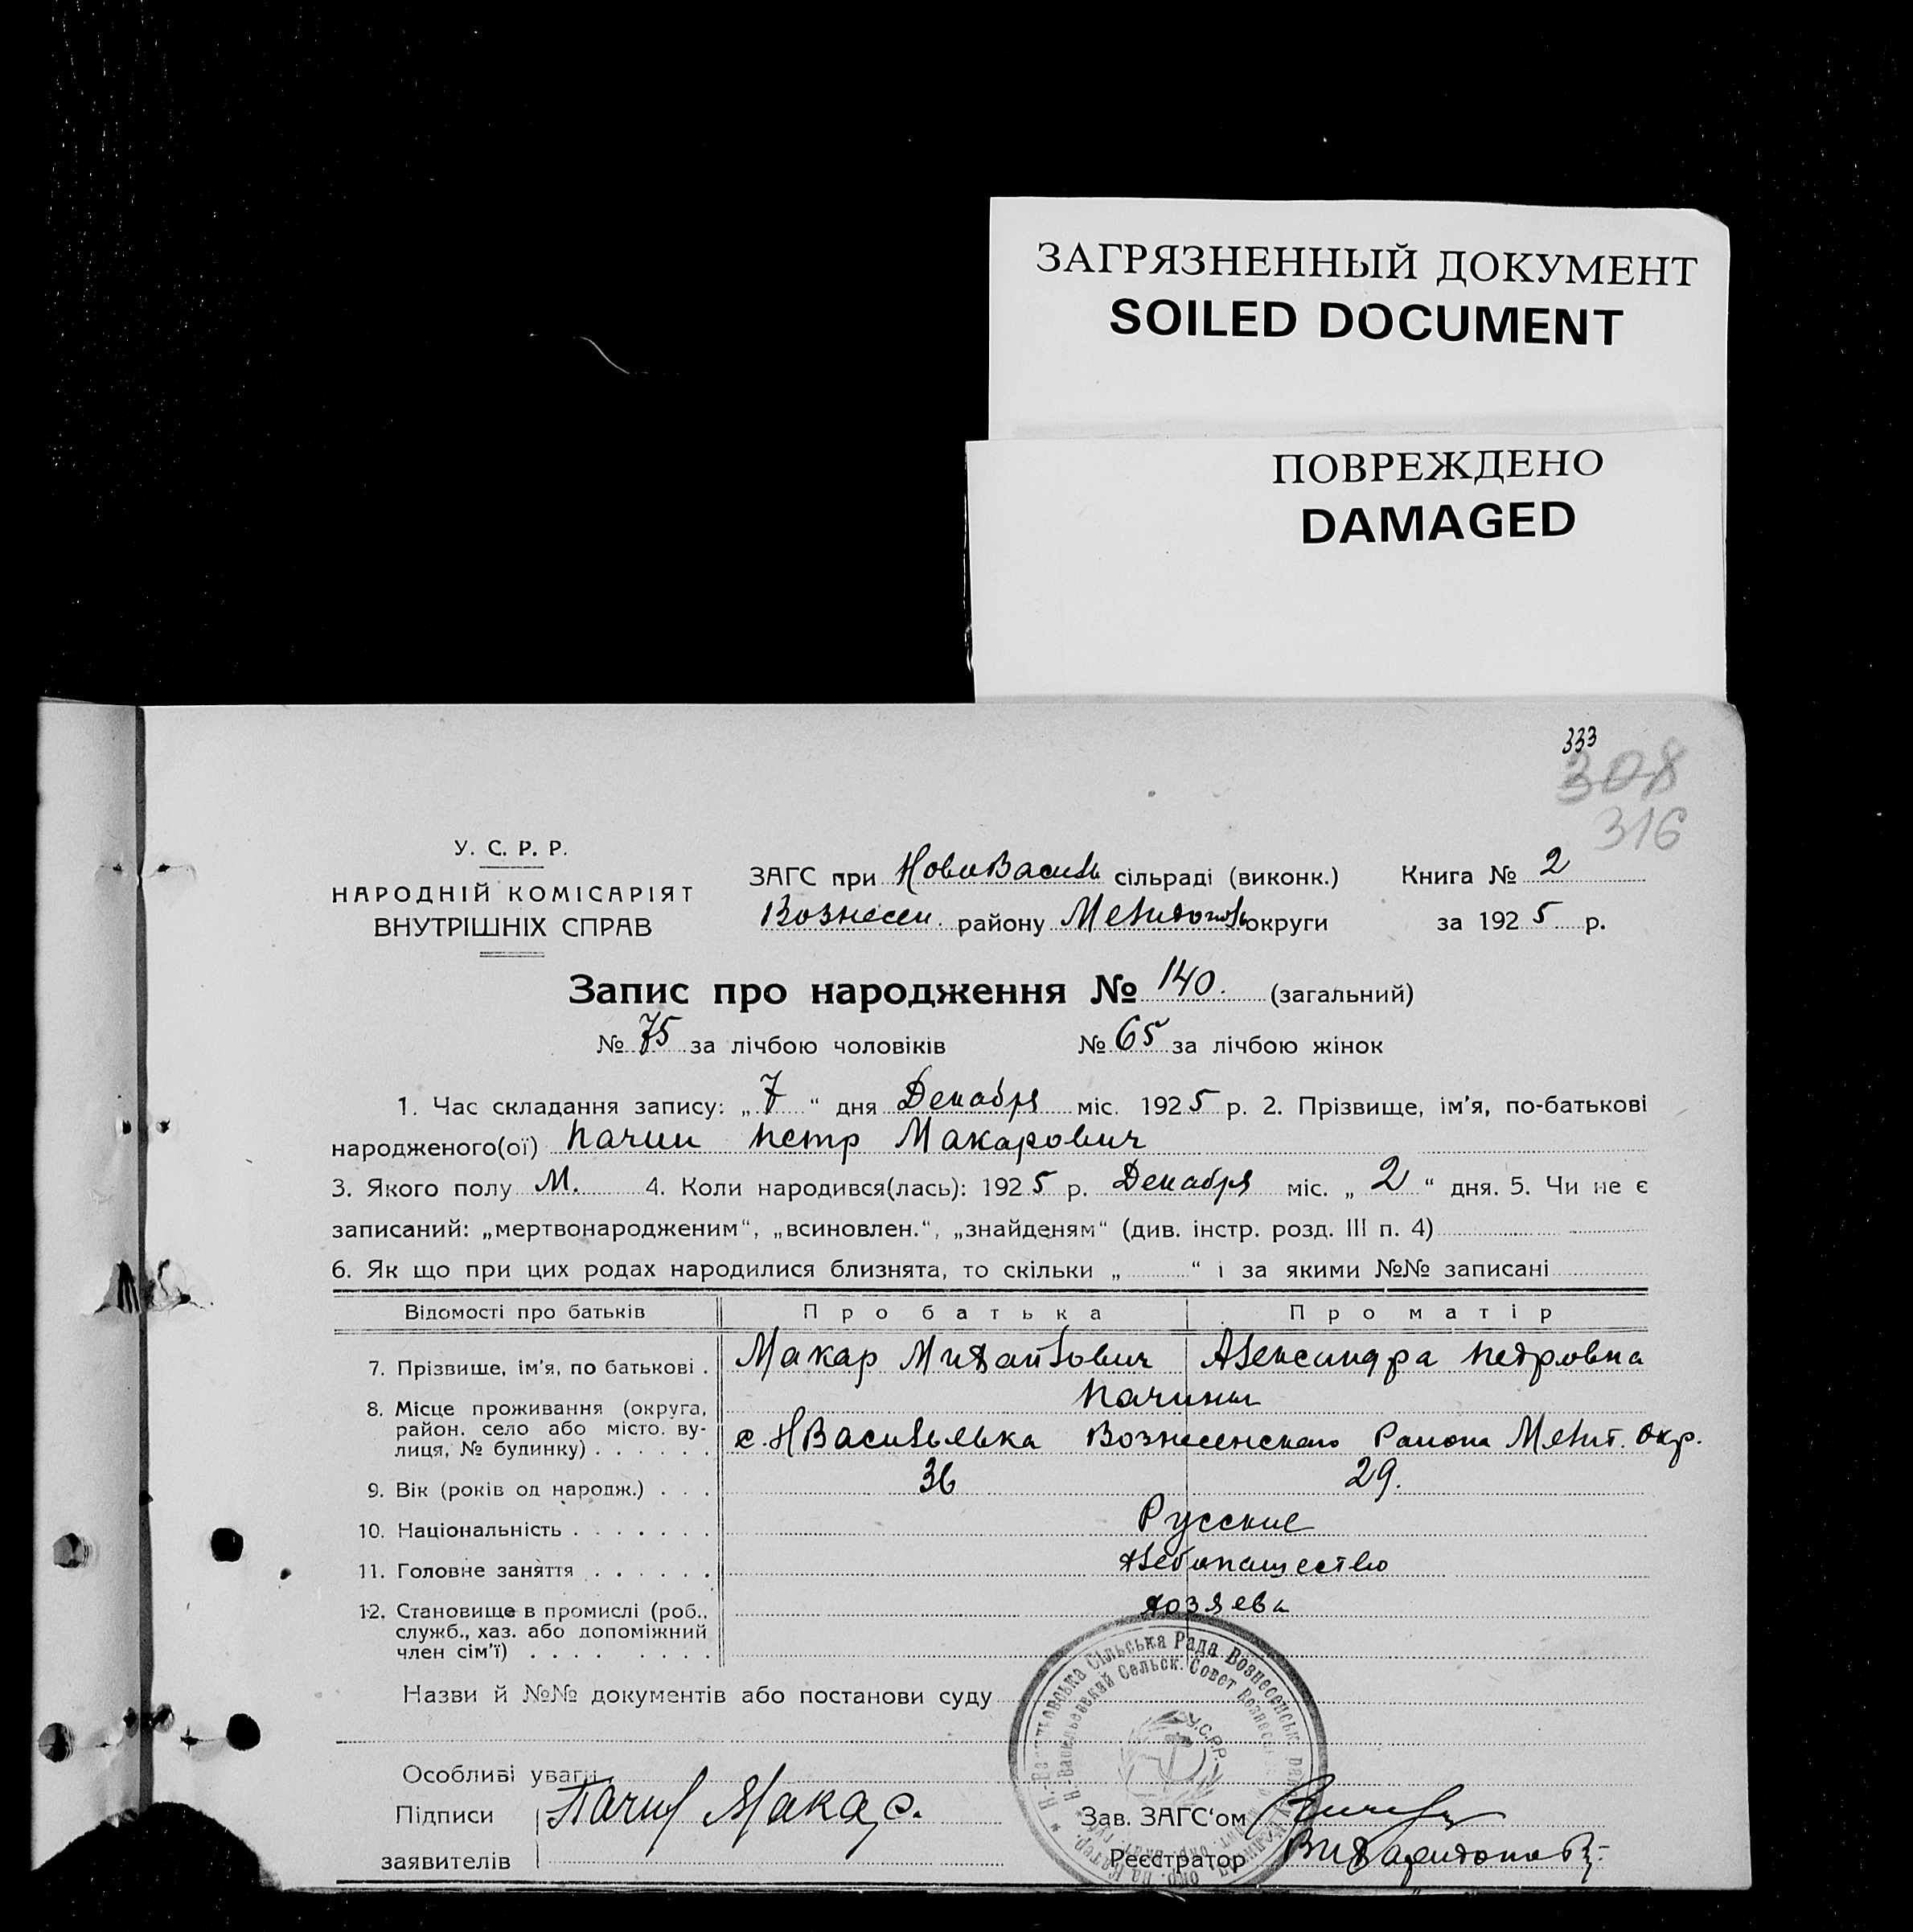 ЗАГРЯЗНЕННЫЙ ДОКУМЕНТ
SOILED DOCUMENT
ПОВРЕЖДЕНО
DAMAGED
333
308
316
У. С. Р. Р.
НАРОДНІЙ КОМІСАРІЯТ
ВНУТРІШНІХ СПРАВ
ЗАГС при НовоВасиль сільраді (виконк.) Книга № 2
Вознесен. району Мелитополь округи за 1925 р.
Запис про народження № 140. (загальний)
№ 75 за лічбою чоловіків № 65 за лічбою жінок
1. Час складання запису: „7“ дня Декабря міс. 1925 р. 2. Прізвище, ім'я, по-батькові
народженого(ої) Пачин Петр Макарович
3. Якого полу М. 4. Коли народився(лась): 1925 р. Декабря міс. „2“ дня. 5. Чи не є
записаний: „мертвонародженим“, „всиновлен.“, „знайденям“ (див. інстр. розд. III п. 4)
6. Як що при цих родах народилися близнята, то скільки „ “ і за якими №№ записані
Відомості про батьків Про батька Про матір
7. Прізвище, ім'я, по батькові . Макар Михайлович Александра Петровна
Пачины
8. Місце проживання (округа,
район, село або місто, ву-
лиця, № будинку) . . . . . . с. НВасильевка Вознесенского Района Мелит. Окр.
9. Вік (років од народж.) . . . 36 29.
10. Національність . . . . . . . Русские
11. Головне заняття . . . . . . Хлебопашество
12. Становище в промислі (роб., хозяева
служб., хаз. або допоміжний
член сім'ї) . . . . . . . .
Назви й №№ документів або постанови суду
Н.-Васильовська Сільська Рада Вознесенськ.
Н.-Васильевский Сельск. Совет
У.С.Р.Р.
Особливі уваги
Підписи Пачин Макар. Зав. ЗАГС'ом
заявителів Реєстратор